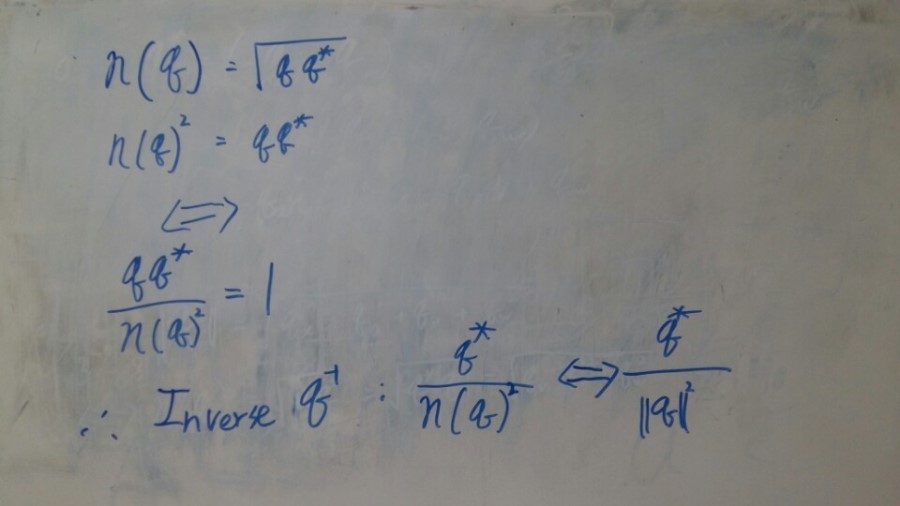 n(q) = √(qq*)
n(q)² = qq*
⇔
qq* / n(q)² = 1
∴ Inverse q⁻¹ : q* / n(q)² ⇔ q* / ||q||²